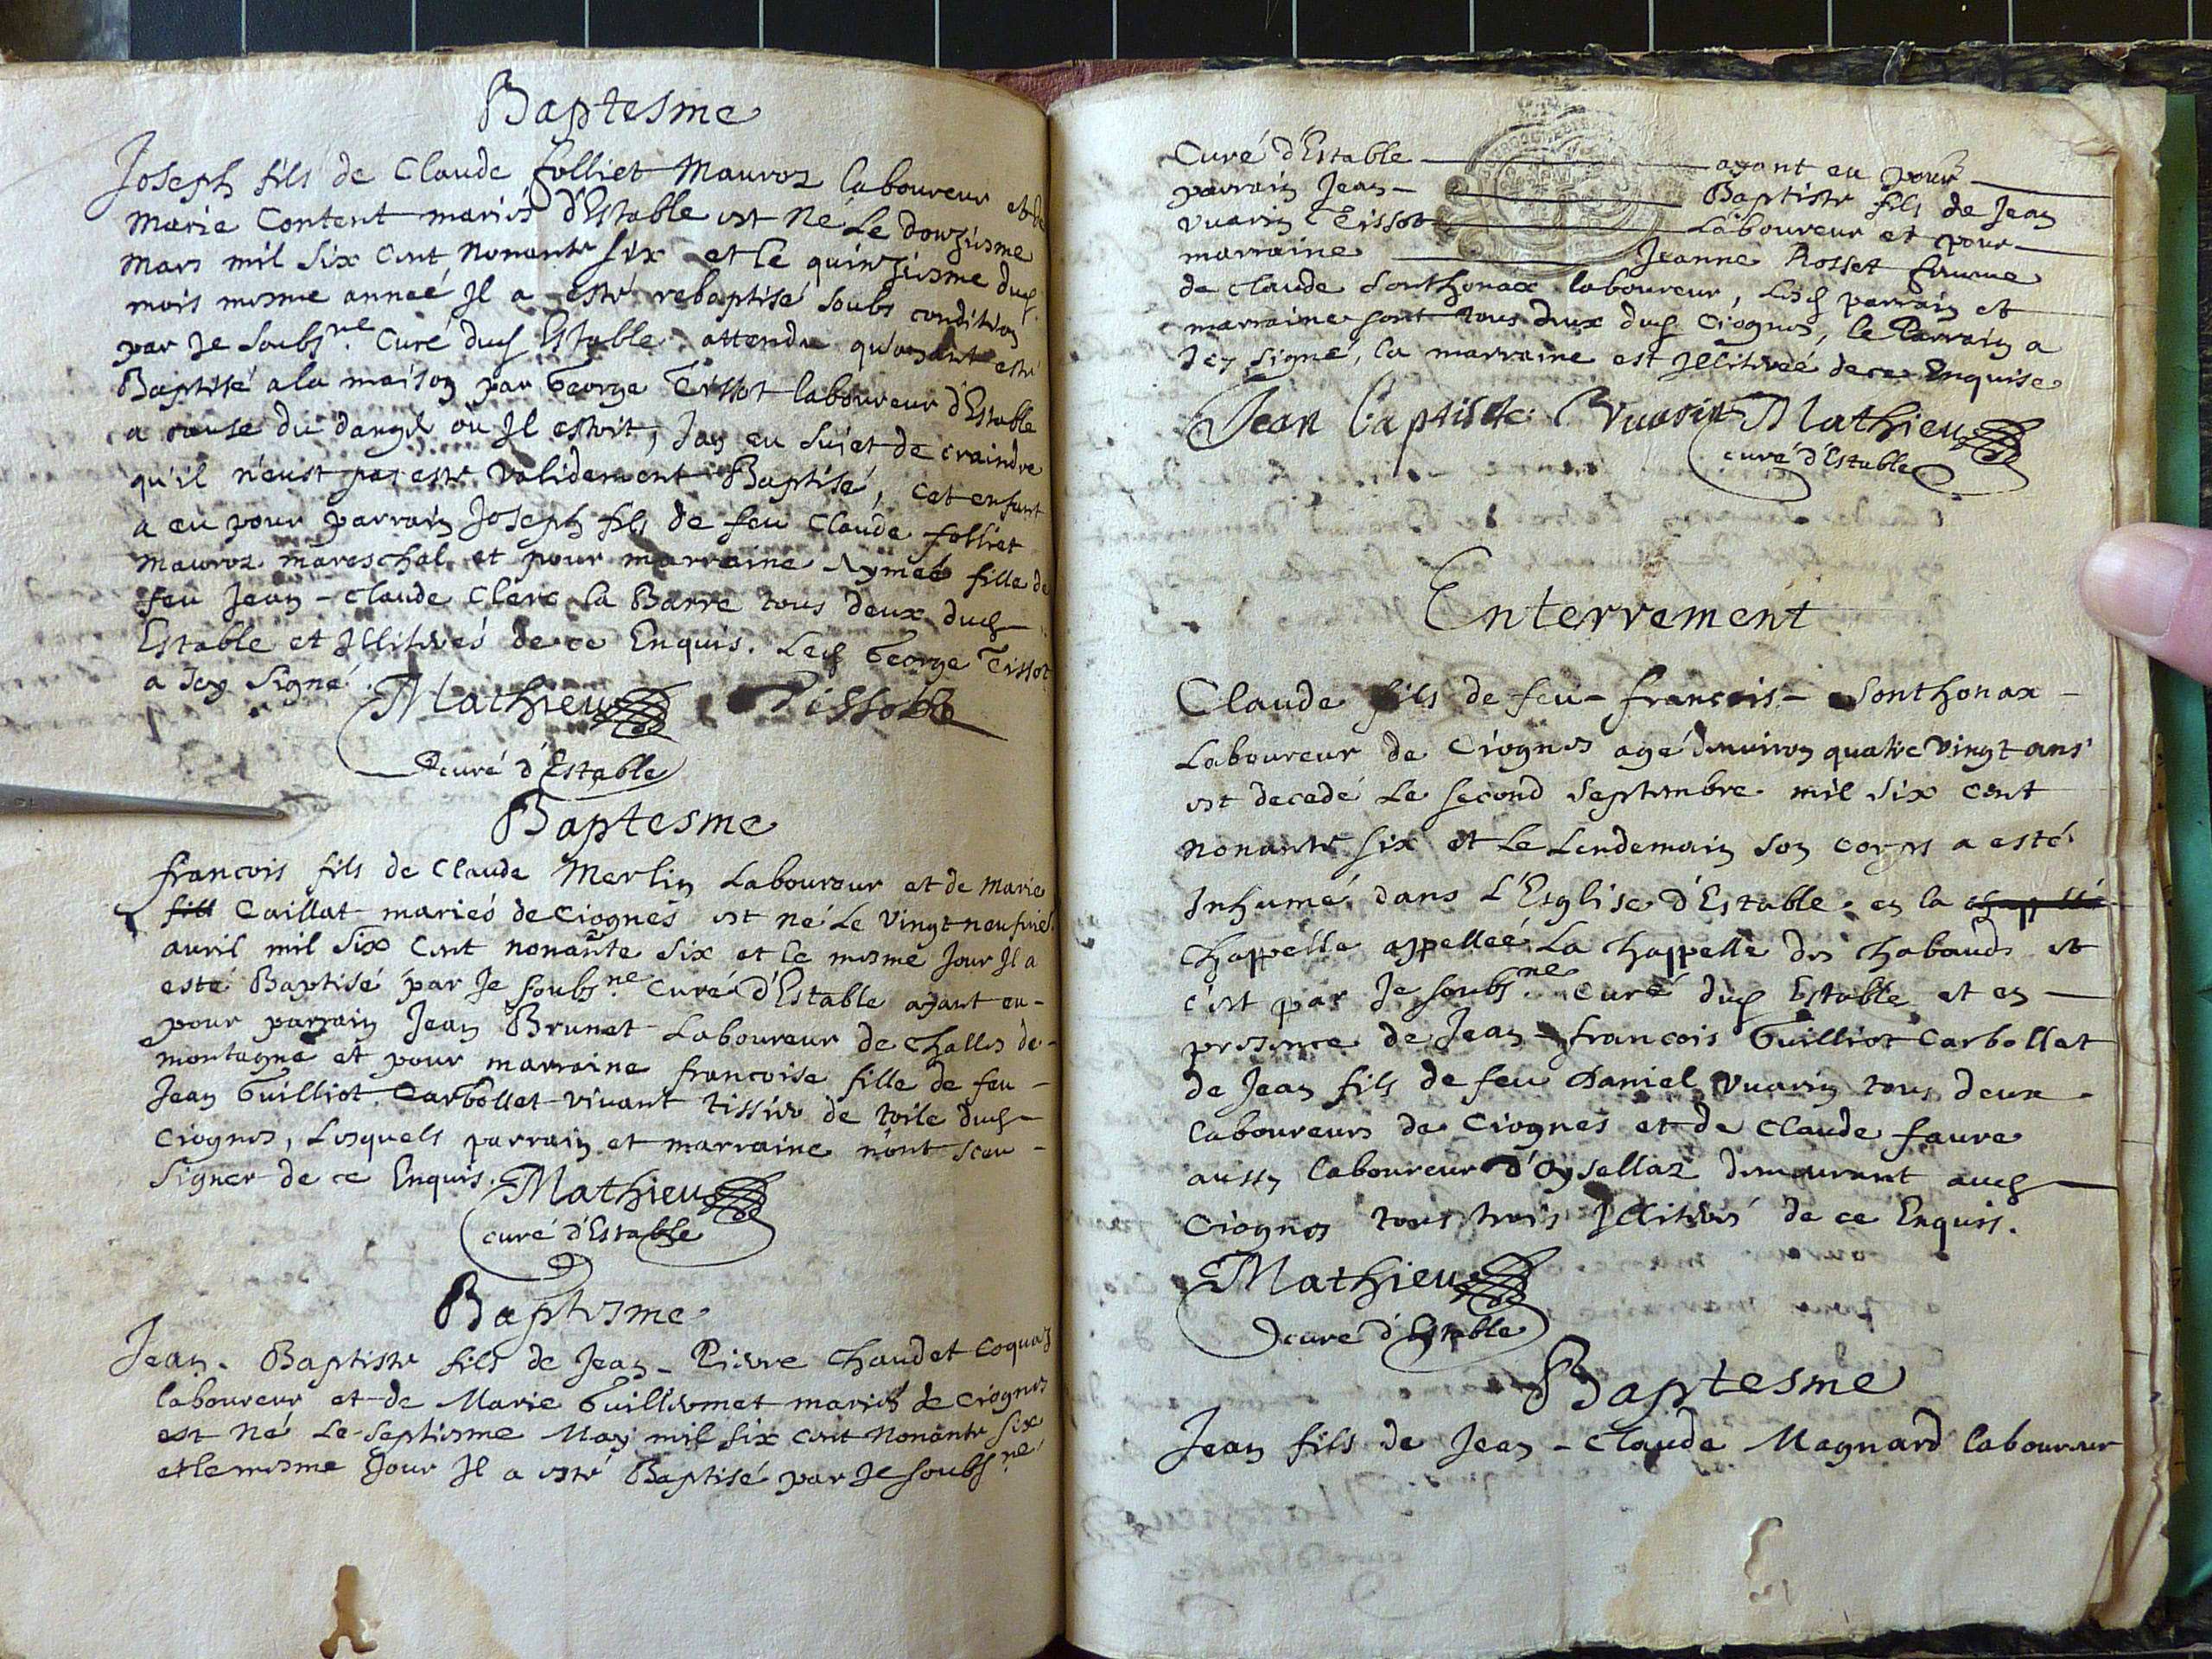 Baptesme
Joseph fils de Claude folliet Mauroz laboureur et de
Marie Content mariés d'Estable est Né Le douziesme
Mars mil Six Cent Nonante six et le quinziesme dud
mois mesme anneé Jl a esté rebaptisé soubs condition
par Je Soubs.ne Curé dud Estable attendu qu'ayant esté
Baptisé a la maison par George Tissot laboureur d'Estable
a cause du danger ou Jl estoit, Jay eu sujet de craindre
qu'il n'eust pas esté validement Baptisé, cet enfant
a eu pour parrain Joseph fils de feu Claude folliet
Mauroz mareschal et pour marraine Aymeé fille de
feu Jean - Claude Clerc la Barre tous deux dud
Estable et Jllitirés de ce Enquis. Led George Tissot
a Icy Signé.
Mathieu Tissot
curé d'Estable
Baptesme
francois fils de Claude Merlin Laboureur et de Marie
fille Caillat mariés de Ciognes est né Le vingt neufvie
avril mil Six Cent nonante Six et le mesme Jour Jl a
esté Baptisé par Je soubs.ne Curé d'Estable ayant eu-
pour parrain Jean Brunet Laboureur de Challes de-
montagne et pour marraine francoise fille de feu-
Jean Guilliot Carbollet vivant tissier de toile dud
Ciognes, Lesquels parrain et marraine n'ont sceu-
Signer de ce Enquis. Mathieu
curé d'Estable
Baptesme
Jean. Baptiste fils de Jean - Pierre Chaudet Coquaz
laboureur et de Marie Guilliermet mariés de Ciognes
est Né Le Septiesme May mil six cent Nonante six
et le mesme Jour Jl a esté Baptisé par Je soubs ne
Curé d'Estable ayant eu pour
parrain Jean - Baptiste fils de Jean
Vuarin Tissot Laboureur et pour
marraine Jeanne Rosset femme
de Claude Sonthonax laboureur, Lesd parrain et
marraine sont tous deux dud Ciognes, le Parrain a
Icy signé, la marraine est Jllitireé de ce Enquise
Jean baptiste Vuarin Mathieu
curé d'Estable
Enterrement
Claude fils de feu - francois - Sonthonax -
Laboureur de Ciognes agé denviron quatre vingt ans
est decedé Le second Septembre mil six cent
nonante six et Le Lendemain son corps a esté
Inhumé dans L'Esglise d'Estable en la chappelle
Chappelle appelleé La Chappelle des Chabauds et
c'est par Je soubs.ne Curé dud Estable et en
presence de Jean - francois Guilliot Carbollet
de Jean fils de feu Daniel Vuarin tous deux
laboureurs de Ciognes et de Claude faure
aussy laboureur d'Oysellaz demeurant aud
Ciognes tous trois Jllitirés de ce Enquis.
Mathieu
curé d'Estable
Baptesme
Jean fils de Jean - Claude Magnard laboureur